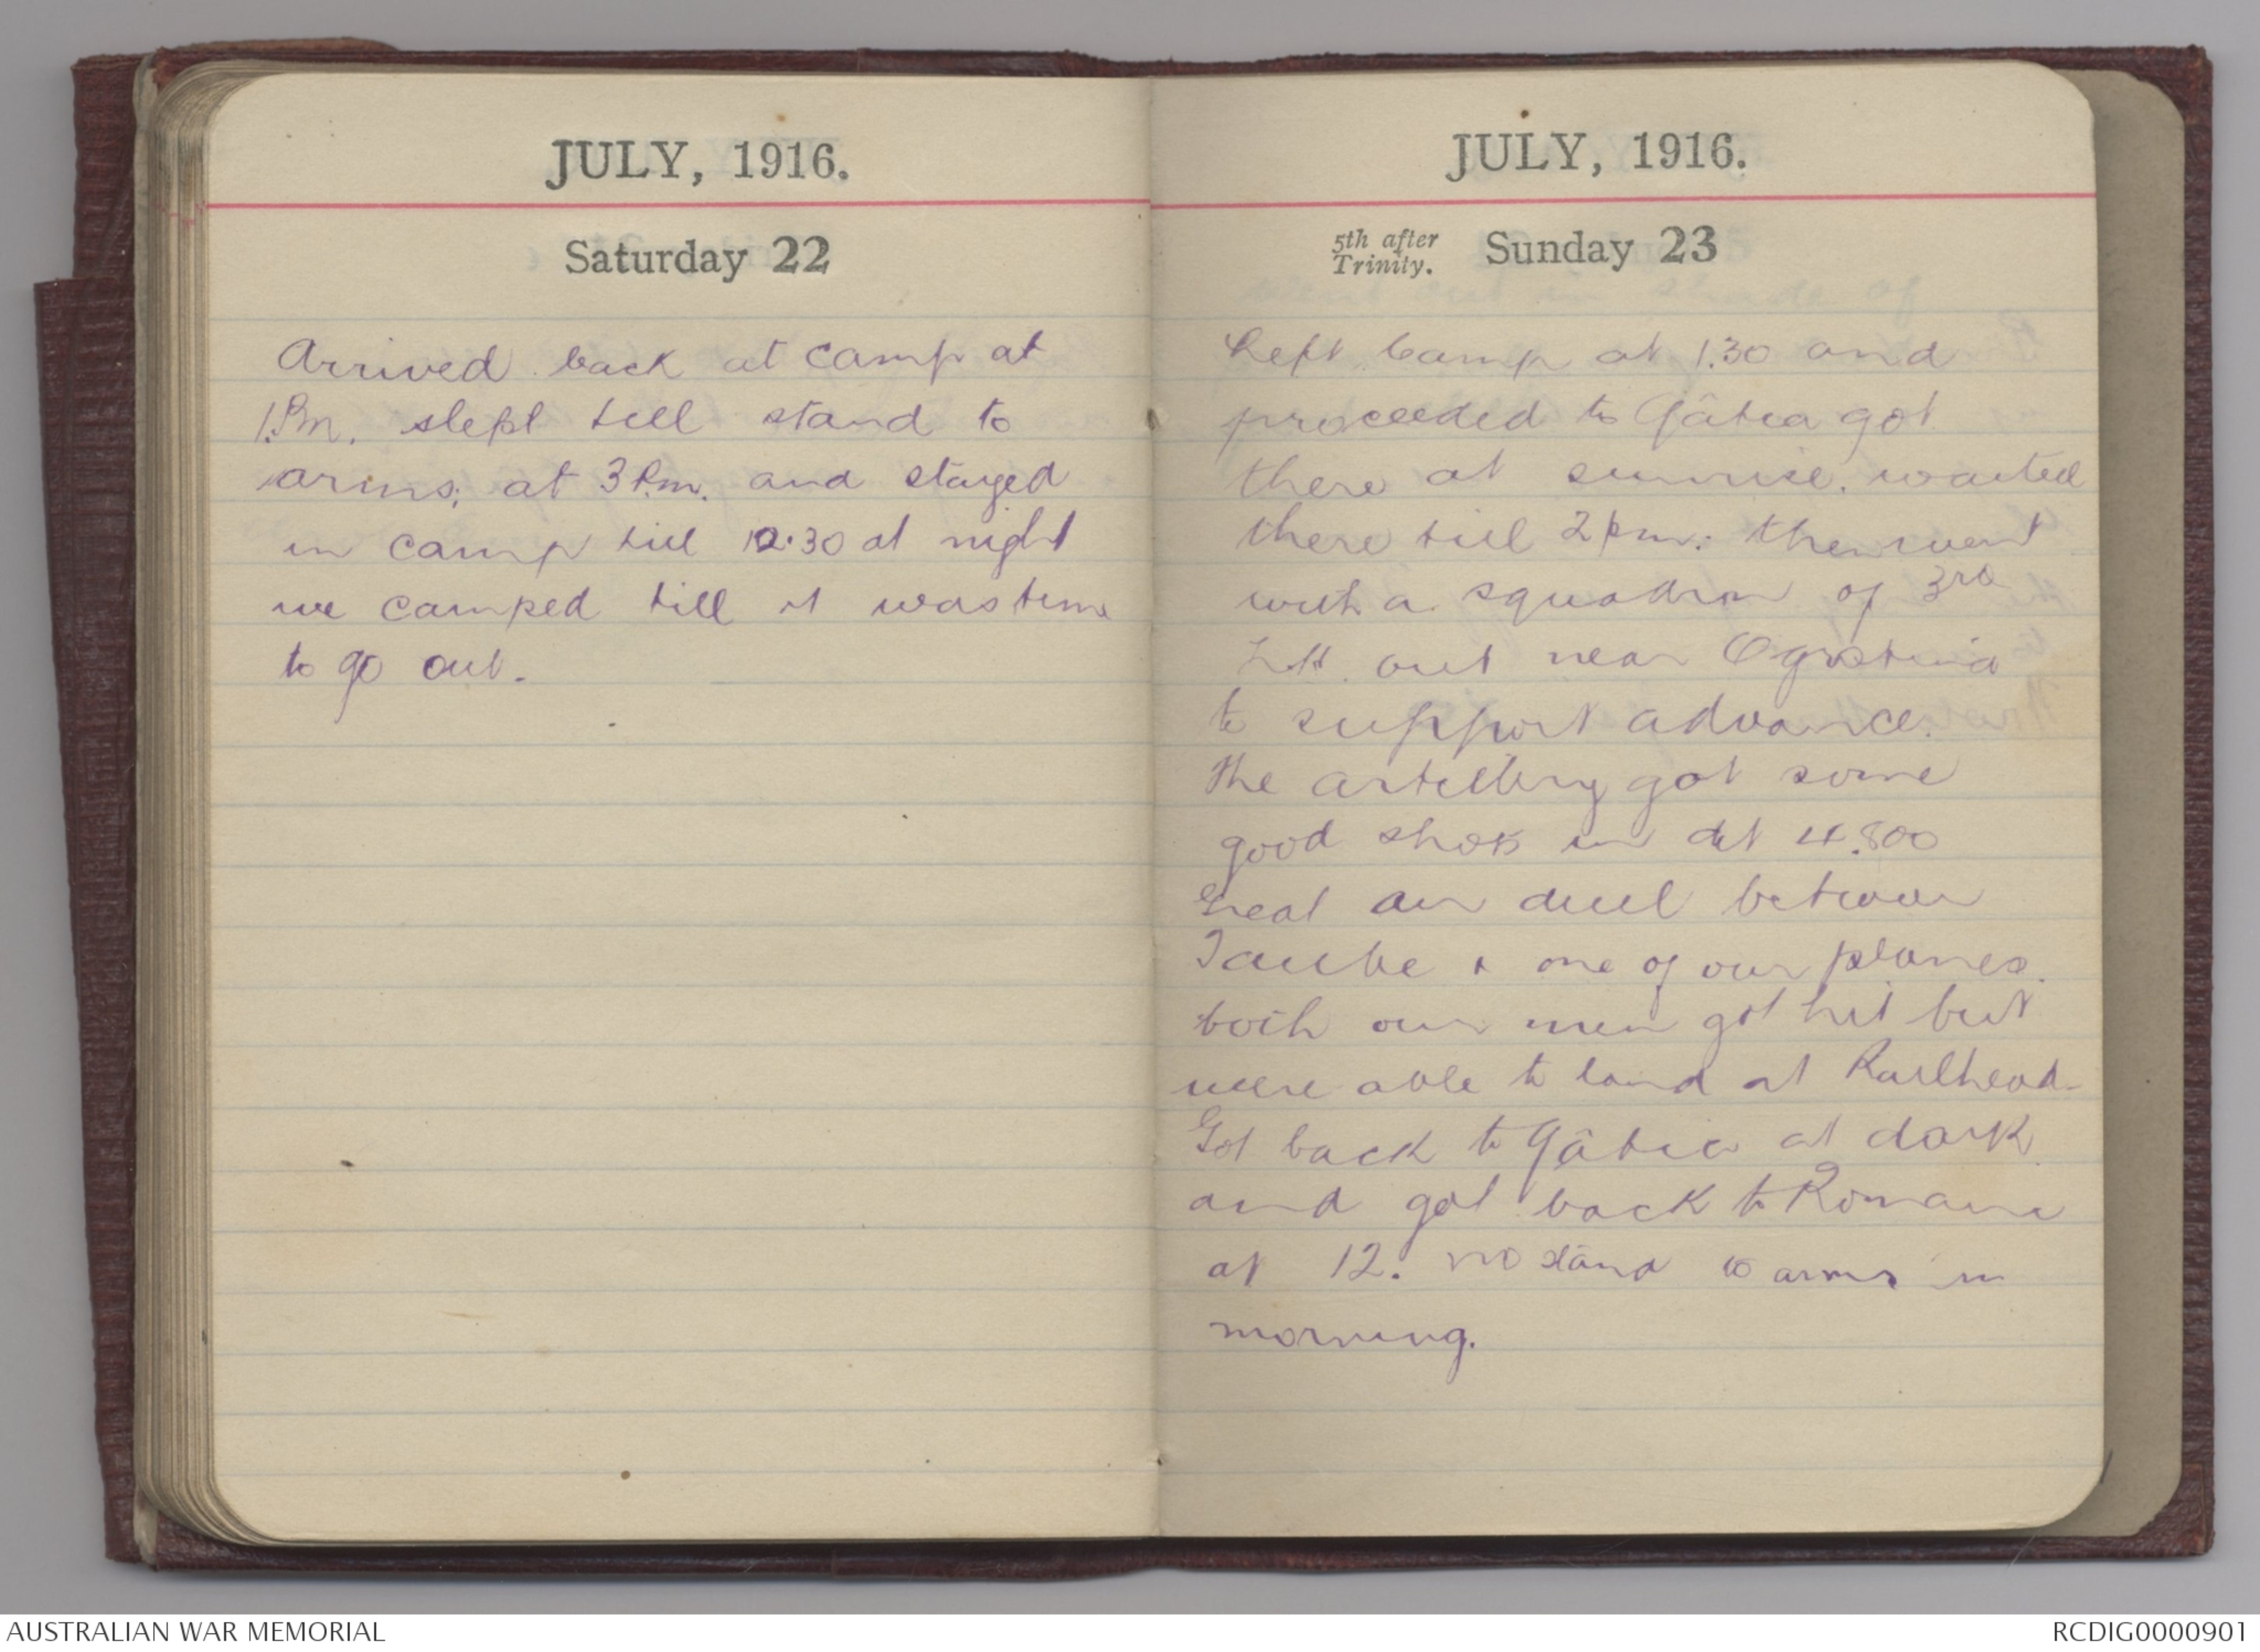 JULY, 1916.
Saturday 22
Arrived back at camp at
1.Pm. slept till stand to
arms; at 3 P.m. and stayed
in camp till 12.30 at night
we camped till it was time
to go out.
JULY, 1916.
5th after Trinity. Sunday 23
Left Camp at 1.30 and
proceeded to Qâtia got
there at sunrise. waited
there till 2 pm: then went
with a squadron of 3rd
L.H. out near Ogratina
to support advance.
The artillery got some
good shots in at 4.800
Great air duel between
Taube & one of our planes.
both our men got hit but
were able to land at Railhead-
Got back to Qâtia at dark
and got back to Romani
at 12. no stand to arms in
morning.
AUSTRALIAN WAR MEMORIAL
RCDIG0000901